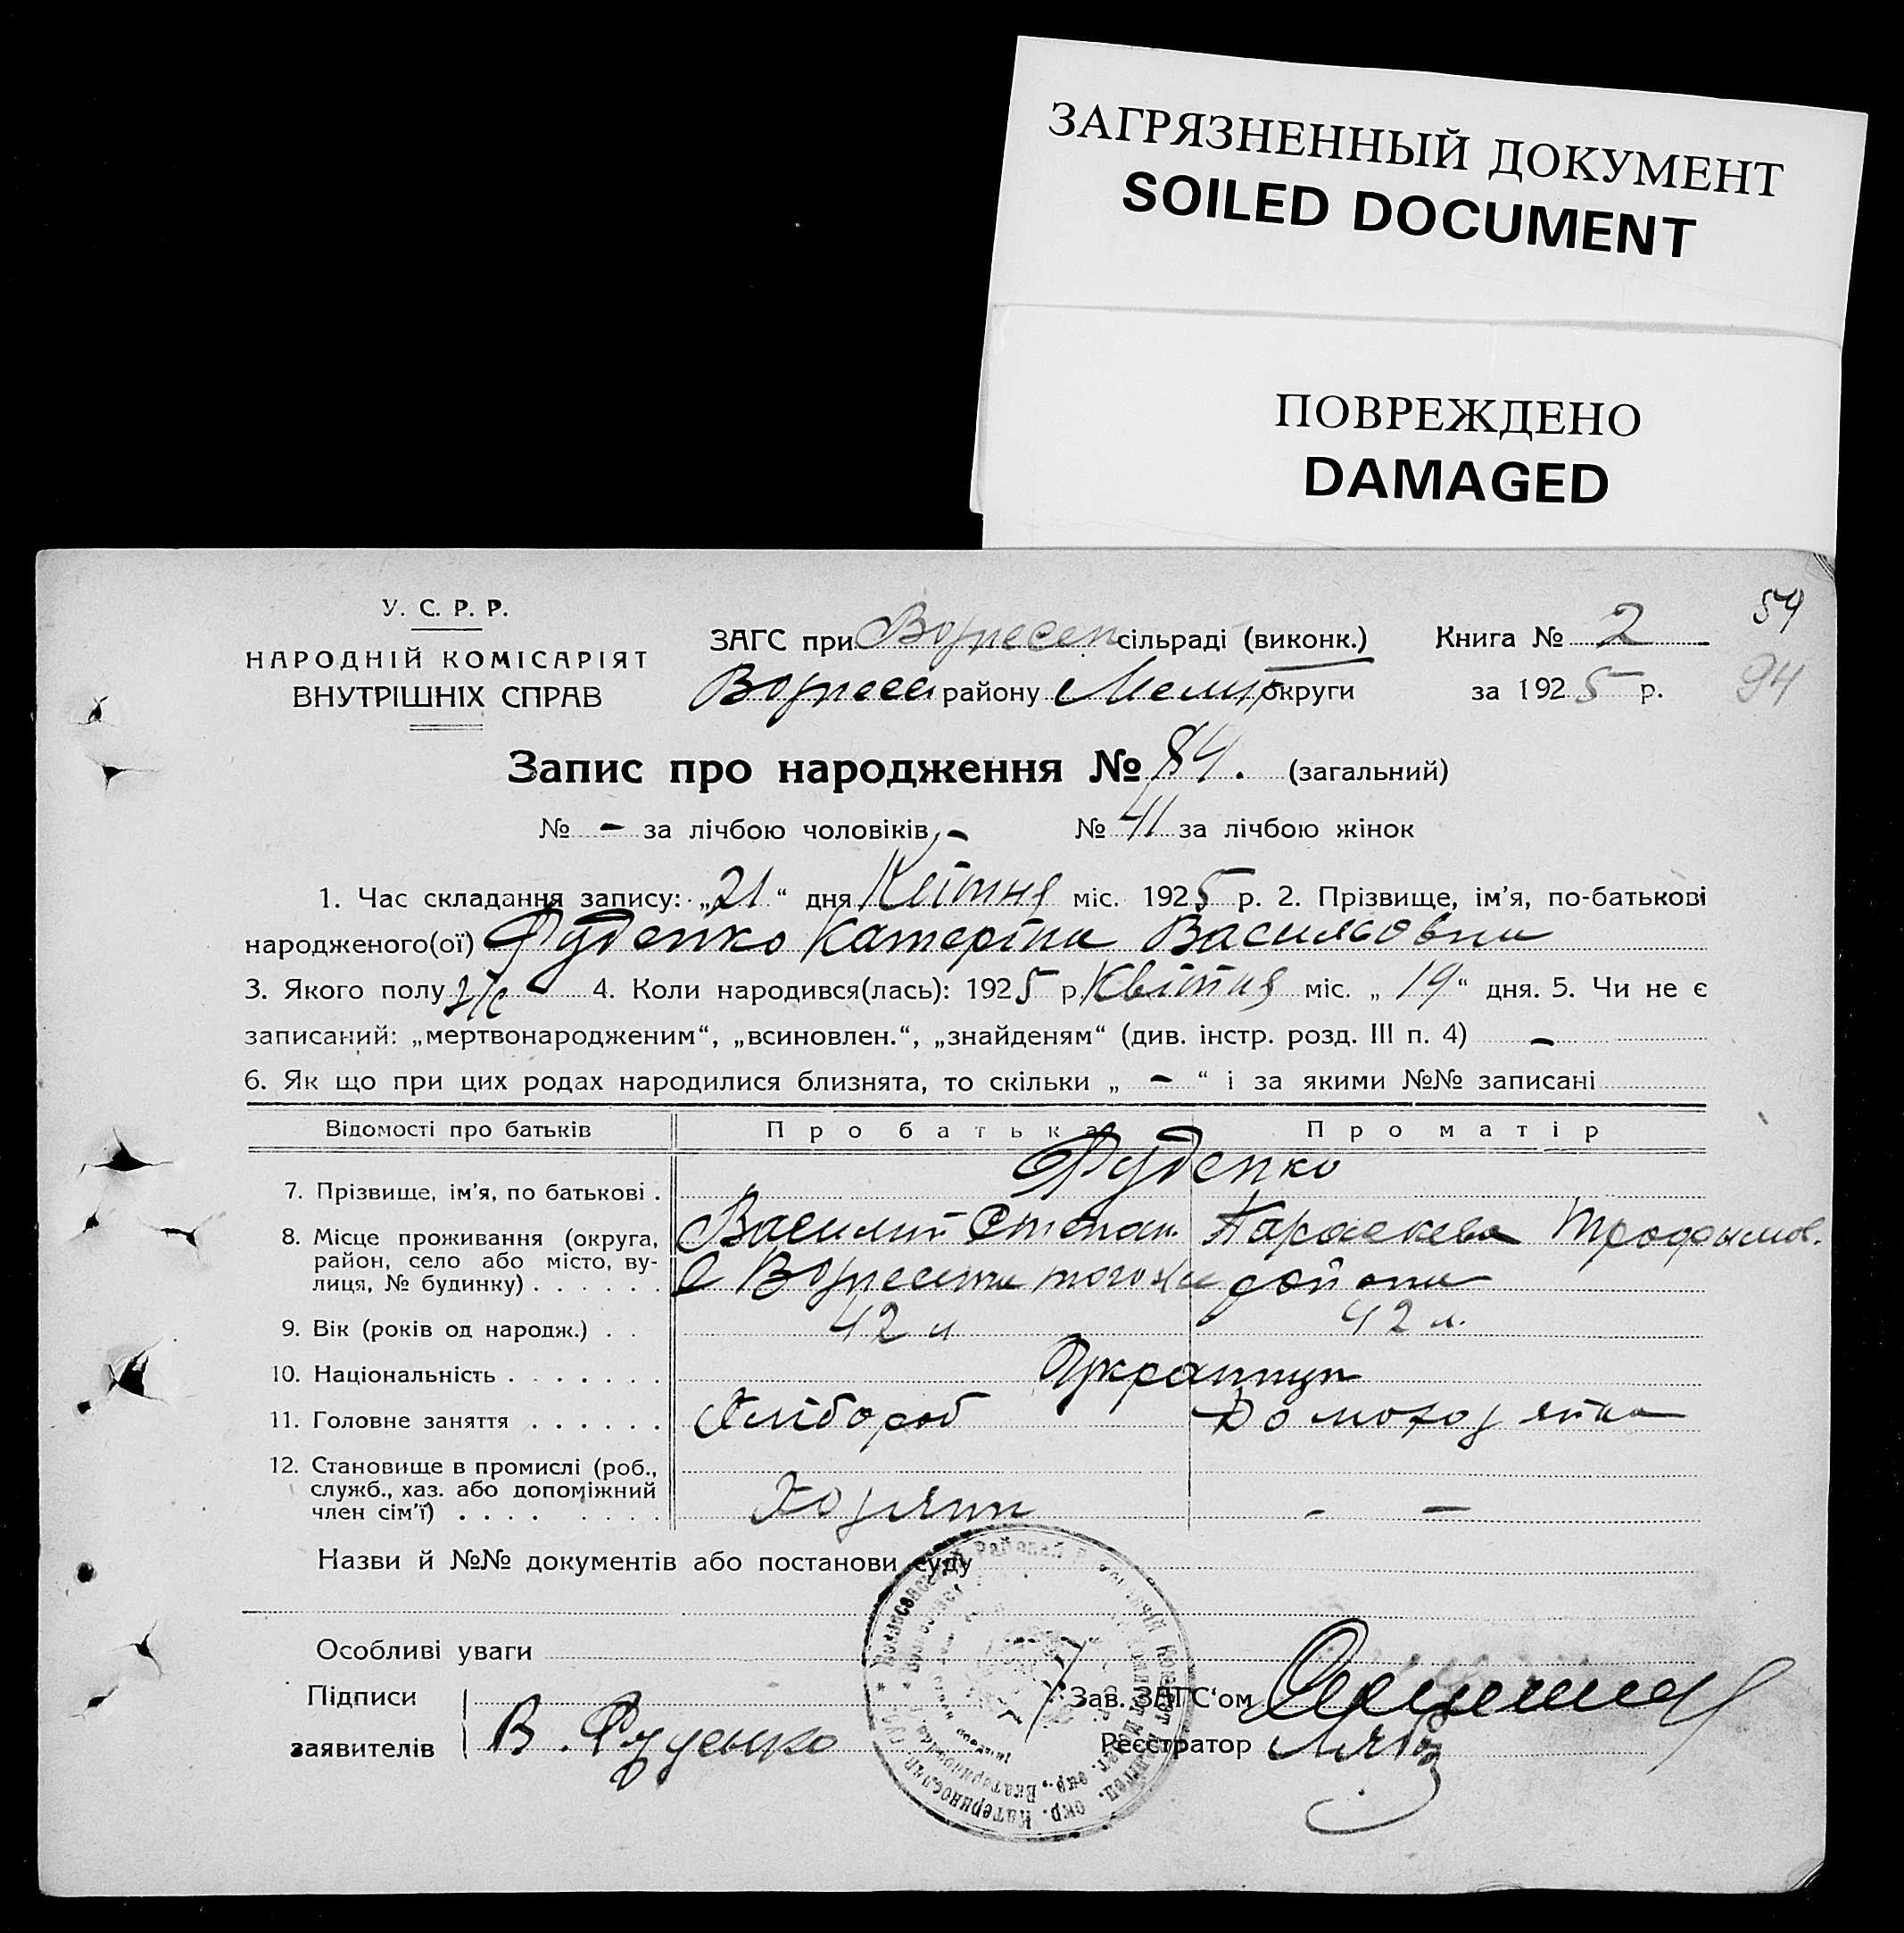 ЗАГРЯЗНЕННЫЙ ДОКУМЕНТ
SOILED DOCUMENT
ПОВРЕЖДЕНО
DAMAGED
У. С. Р. Р.
НАРОДНІЙ КОМІСАРІЯТ
ВНУТРІШНІХ СПРАВ
59
94
ЗАГС при Вознесен сільраді (виконк.) Книга № 2
Вознесен району Меліт округи за 1925 р.
Запис про народження № 84. (загальний)
№ - за лічбою чоловіків - № 41 за лічбою жінок
1. Час складання запису: „21“ дня Квітня міс. 1925 р. 2. Прізвище, ім'я, по-батькові
народженого(ої) Руденко Катеріна Васильовна
3. Якого полу ж 4. Коли народився(лась): 1925 р. Квітня міс. „19“ дня. 5. Чи не є
записаний: „мертвонародженим“, „всиновлен.“, „знайденям“ (див. інстр. розд. III п. 4) -
6. Як що при цих родах народилися близнята, то скільки „ - “ і за якими №№ записані
Відомості про батьків Про батька Про матір
7. Прізвище, ім'я, по батькові . Руденко
Василий Степан. Параскева Трофымов.
8. Місце проживання (округа, район, село або місто, вулиця, № будинку) . . . . . . С Вознесенка того же району
9. Вік (років од народж.) . . 42 л 42 л.
10. Національність . . . . . . . Украинцы
11. Головне заняття . . . . . . Хлібороб Домохозяйка
12. Становище в промислі (роб., служб., хаз. або допоміжний член сім'ї) . . . . Хозяин - -
Назви й №№ документів або постанови суду
Особливі уваги
Підписи
заявителів В. Руденко
Зав. ЗАГС‘ом
Реєстратор